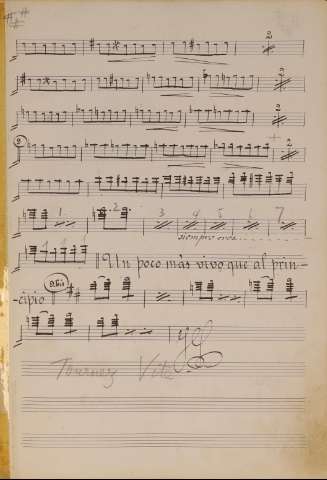 2
2
2
9 2
1 2 3 4 5 6 7
siempre cres...
Un poco más vivo que al prin-
cipio 9 bis
Tournez Vite